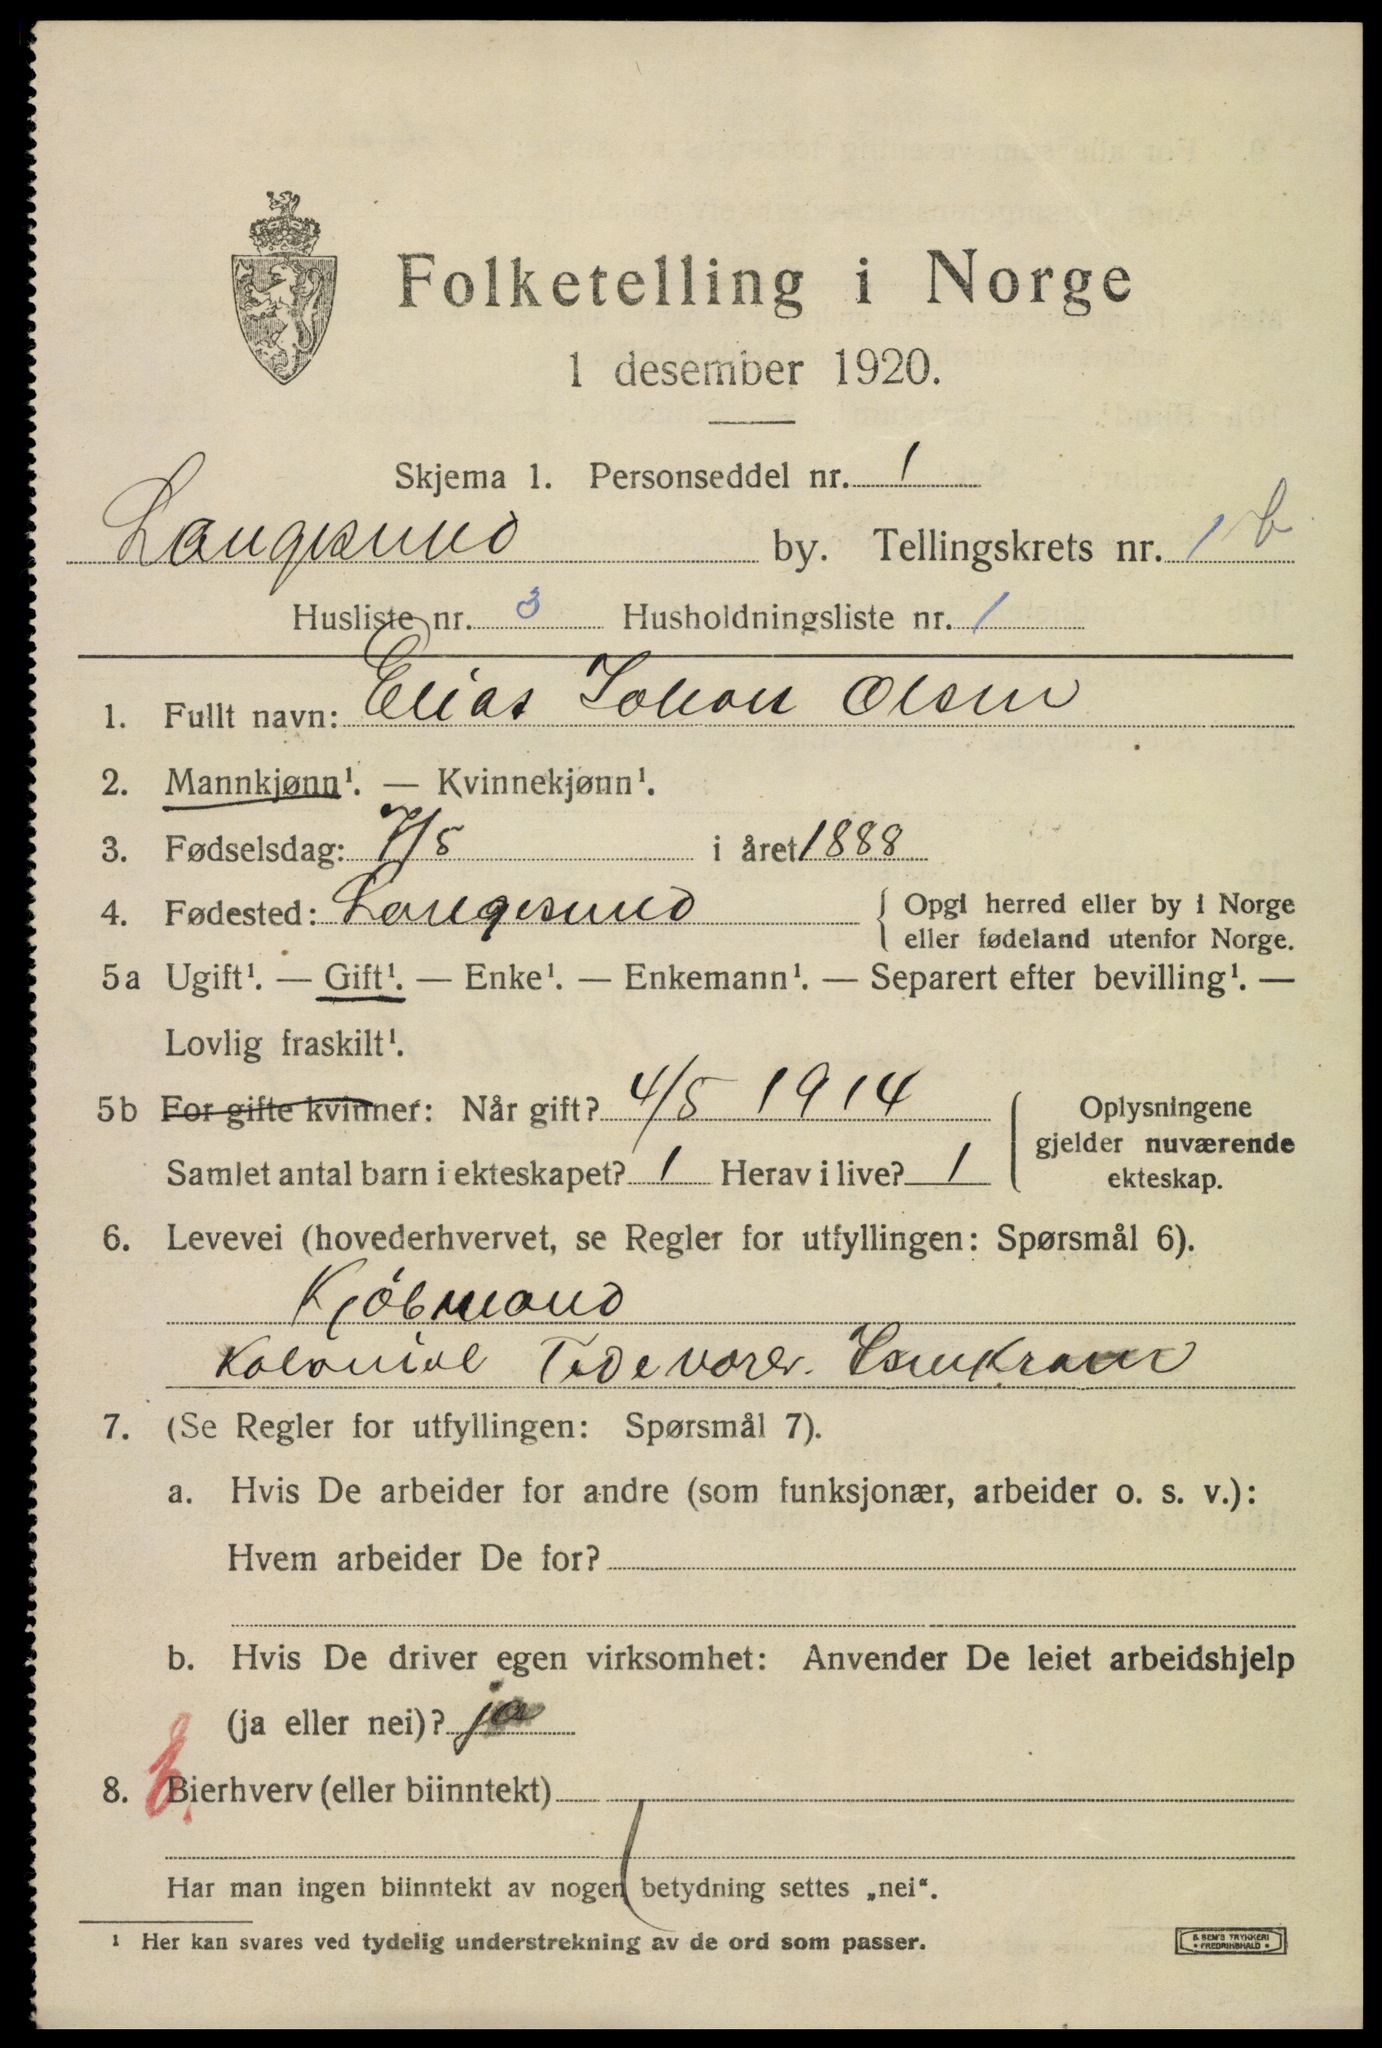 Folketelling i Norge
1 desember 1920.
Skjema 1. Personseddel nr. 1
Langesund by. Tellingskrets nr. 1 b
Husliste nr. 3 Husholdningsliste nr. 1
1. Fullt navn: Elias Johan Olsen
2. Mannkjønn¹. — Kvinnekjønn¹.
3. Fødselsdag: 7/5 i året 1888
4. Fødested: Langesund { Opgi herred eller by i Norge
eller fødeland utenfor Norge.
5a Ugift¹. — Gift¹. — Enke¹. — Enkemann¹. — Separert efter bevilling¹. —
Lovlig fraskilt¹.
5b For gifte kvinner: Når gift? 4/5 1914
Samlet antal barn i ekteskapet? 1 Herav i live? 1
Oplysningene
gjelder nuværende
ekteskap.
6. Levevei (hovederhvervet, se Regler for utfyllingen: Spørsmål 6).
Kjöbmand
Kolonial Fedevarer. Isenkram
7. (Se Regler for utfyllingen: Spørsmål 7).
a. Hvis De arbeider for andre (som funksjonær, arbeider o. s. v.):
Hvem arbeider De for?
b. Hvis De driver egen virksomhet: Anvender De leiet arbeidshjelp
(ja eller nei)? ja
8. Bierhverv (eller biinntekt)
Har man ingen biinntekt av nogen betydning settes „nei“.
¹ Her kan svares ved tydelig understrekning av de ord som passer.
S. SEM'S TRYKKERI
• FREDRIKSHALD •